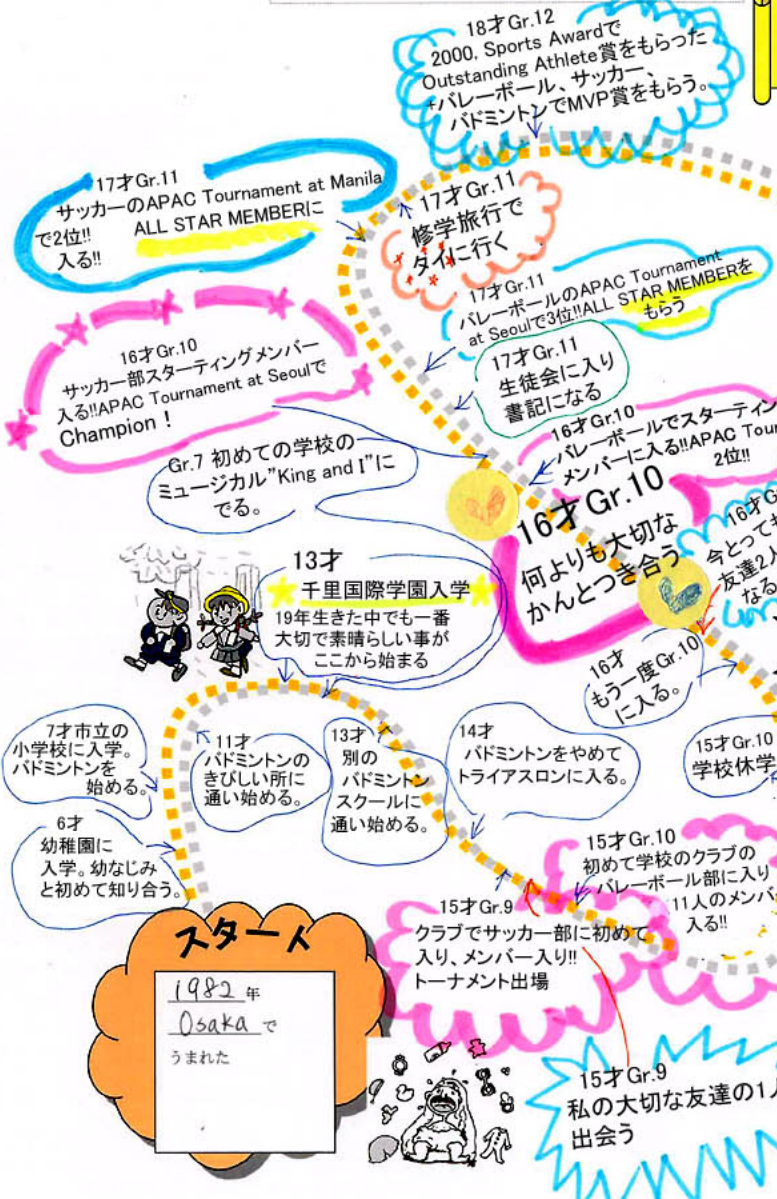 18才 Gr.12
2000, Sports Awardで
Outstanding Athlete賞をもらった
+バレーボール、サッカー、
バドミントンでMVP賞をもらう。
17才 Gr.11
サッカーのAPAC Tournament at Manila
で2位!! ALL STAR MEMBERに
入る!!
17才 Gr.11
修学旅行で
タイに行く
17才 Gr.11
バレーボールのAPAC Tournament
at Seoulで3位!!ALL STAR MEMBERを
もらう
17才 Gr.11
生徒会に入り
書記になる
16才 Gr.10
サッカー部スターティングメンバー
入る!!APAC Tournament at Seoulで
Champion!
16才 Gr.10
バレーボールでスターティン
メンバーに入る!!APAC Tour
2位!!
Gr.7 初めての学校の
ミュージカル"King and I"に
でる。
16才 Gr.10
何よりも大切な
かんとつき合う
16才 G
今とっても
友達2人
なる
13才
千里国際学園入学
19年生きた中でも一番
大切で素晴らしい事が
ここから始まる
16才
もう一度Gr.10
に入る。
15才 Gr.10
学校休学
7才市立の
小学校に入学。
バドミントンを
始める。
11才
バドミントンの
きびしい所に
通い始める。
13才
別の
バドミントン
スクールに
通い始める。
14才
バドミントンをやめて
トライアスロンに入る。
6才
幼稚園に
入学。幼なじみ
と初めて知り合う。
15才 Gr.10
初めて学校のクラブの
バレーボール部に入り
11人のメンバ
入る!!
15才 Gr.9
クラブでサッカー部に初めて
入り、メンバー入り!!
トーナメント出場
スタート
1982 年
Osaka で
うまれた
15才 Gr.9
私の大切な友達の1人
出会う